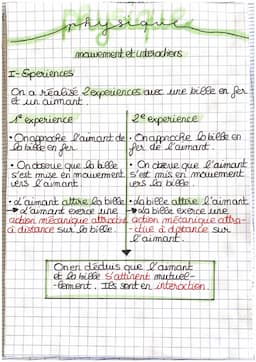 physique
mouvement et interactions
I- Experiences
On a réalisé 2 experiences avec une bille en fer
et un aimant.
1e experience
• On approche l'aimant de
la bille en fer.
• On observe que la bille
s'est mise en mouvement
vers l'aimant.
• L'aimant attire la bille
→ L'aimant exerce une
action mécanique attractive
à distance sur la bille.
2e experience
• On approche la bille en
fer de l'aimant.
• On observe que l'aimant
s'est mis en mouvement
vers la bille.
• La bille attire l'aimant
→ La bille exerce une
action mécanique attra-
-ctive à distance sur
l'aimant.
On en déduis que l'aimant
et la bille s'attirent mutuel-
-lement. Ils sont en interaction.